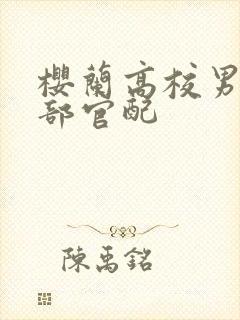 櫻蘭高校男
部官配
陳禹銘